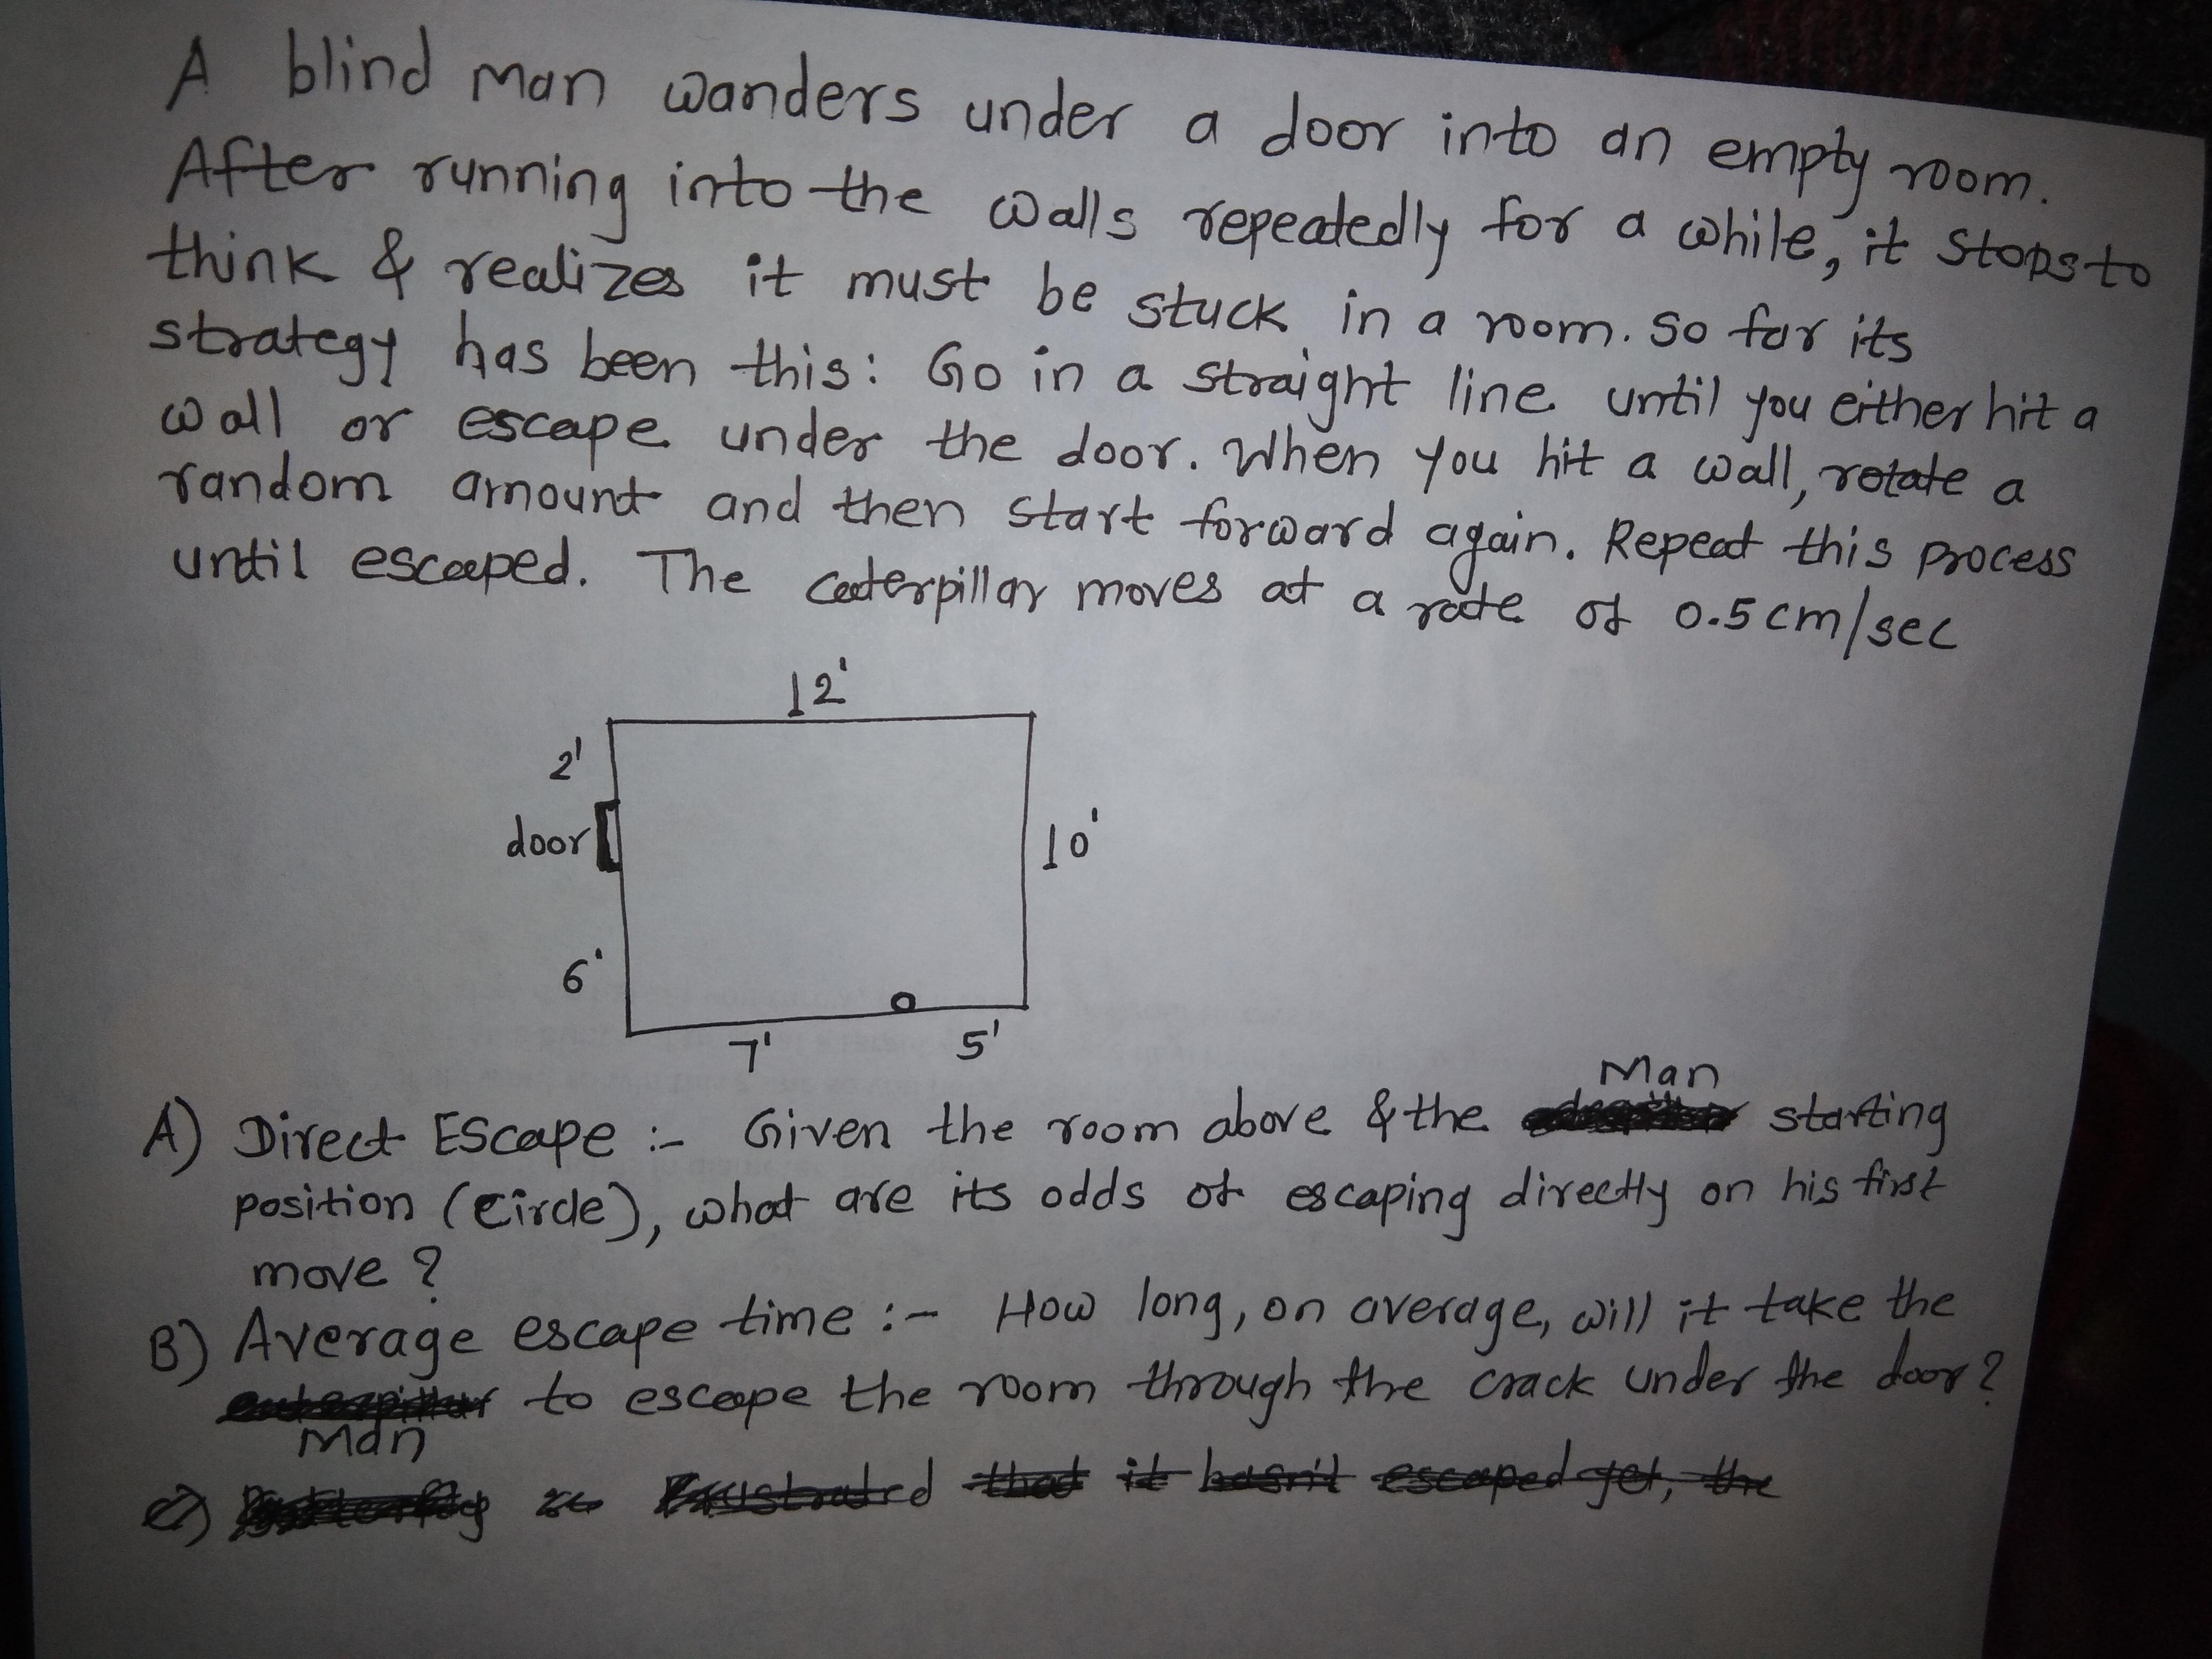 A blind man wanders under a door into an empty room.
After running into the walls repeatedly for a while, it stops to
think & realizes it must be stuck in a room. So far its
strategy has been this: Go in a straight line until you either hit a
wall or escape under the door. When you hit a wall, rotate a
random amount and then start forward again. Repeat this process
until escaped. The caterpillar moves at a rate of 0.5 cm/sec
12'
2'
door
10'
6'
7' 5'
Man
A) Direct Escape :- Given the room above & the starting
position (Circle), what are its odds of escaping directly on his first
move ?
B) Average escape time :- How long, on average, will it take the
caterpillar to escape the room through the crack under the door?
Man
c) is Frustrated that it hasn't escaped yet, the